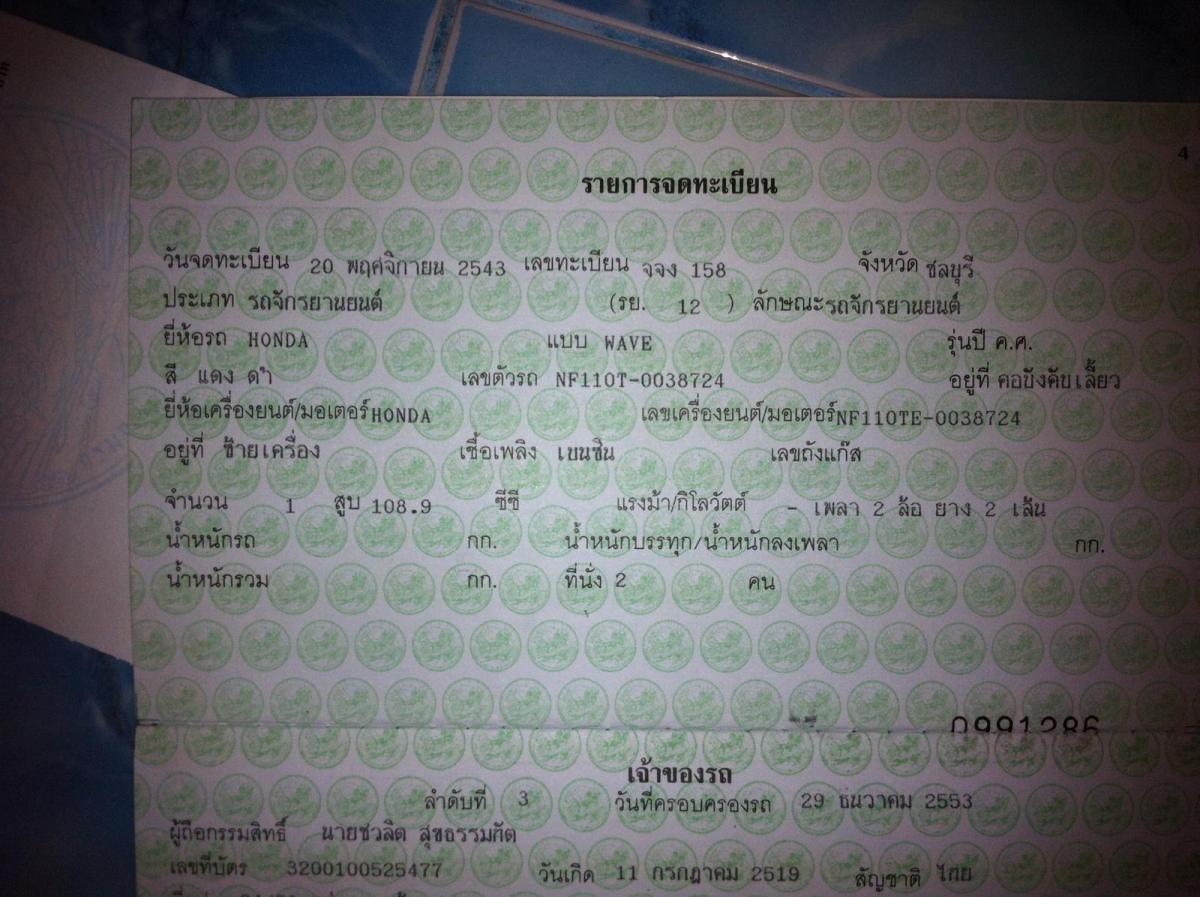 4
รายการจดทะเบียน
วันจดทะเบียน 20 พฤศจิกายน 2543 เลขทะเบียน จจง 158 จังหวัด ชลบุรี
ประเภท รถจักรยานยนต์ (รย. 12 ) ลักษณะรถจักรยานยนต์
ยี่ห้อรถ HONDA แบบ WAVE รุ่นปี ค.ศ.
สี แดง ดำ เลขตัวรถ NF110T-0038724 อยู่ที่ คอบังคับเลี้ยว
ยี่ห้อเครื่องยนต์/มอเตอร์ HONDA เลขเครื่องยนต์/มอเตอร์ NF110TE-0038724
อยู่ที่ ซ้ายเครื่อง เชื้อเพลิง เบนซิน เลขถังแก๊ส
จำนวน 1 สูบ 108.9 ซีซี แรงม้า/กิโลวัตต์ - เพลา 2 ล้อ ยาง 2 เส้น
น้ำหนักรถ กก. น้ำหนักบรรทุก/น้ำหนักลงเพลา กก.
น้ำหนักรวม กก. ที่นั่ง 2 คน
0991286
เจ้าของรถ
ลำดับที่ 3 วันที่ครอบครองรถ 29 ธนวาคม 2553
ผู้ถือกรรมสิทธิ์ นายชวลิต สุขธรรมกัต
เลขที่บัตร 3200100525477 วันเกิด 11 กรกฎาคม 2519 สัญชาติ ไทย